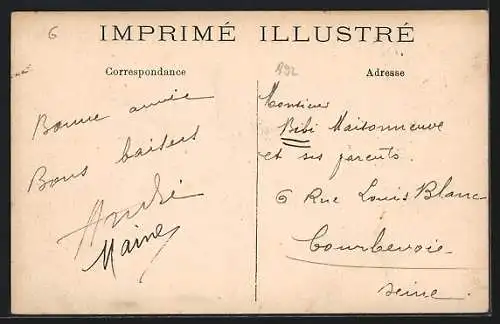 6
IMPRIMÉ ILLUSTRÉ
Correspondance
Bonne année
Bons baisers
André
Maine
892
Adresse
Monsieur
Bibi Maisonneuve
et ses parents.
6 Rue Louis Blanc
Courbevoie
Seine